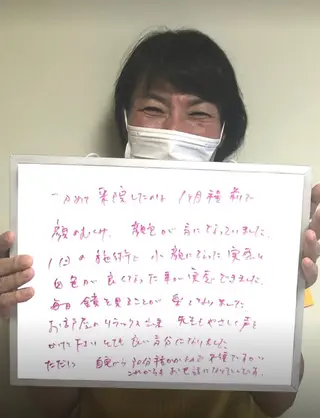 一番初めて来院したのは 1ヶ月程前で
顔のむくみ、顔色が気になっていました。
1回の施術で小顔になった実感と
血色が良くなった事が実感できました。
毎日鏡を見ることが楽しくなりました。
お部屋のリラックス出来、先生もやさしく声を
かけて下さりとても良い気分になりました。
ただ 自宅から30分程かかるので不便ですが
これからもお世話になりたいです。